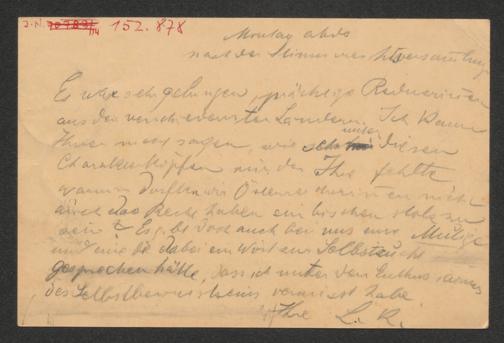 J.N. 152.878
Montag abds
nach der Stimmrechtsversamlung
Es war sehr gelungen, prächtige Rednerinnen
aus den verschiedensten Ländern. Ich kann
Ihnen nicht sagen, wie unter diesen
Charakterköpfen mir der Ihre fehlte
warum dürfen wir Österreicherinnen nicht
auch das Recht haben ein bischen stolz zu
sein? Es gibt doch auch bei uns eine Mutige
und mir die dabei ein Wort zur Selbstsucht
gesprochen hätte, dass ich unter dem Enthusiasmus
des Selbstbewusstseins vermisst habe.
Ihre L. R.